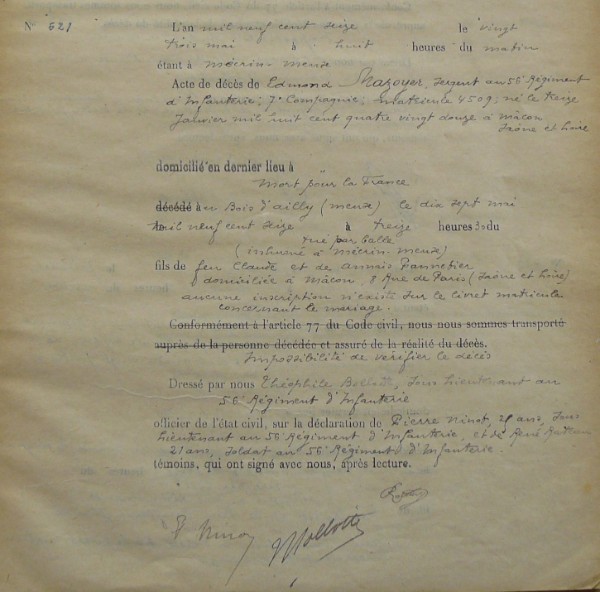 N° 621
L'an mil neuf cent seize le vingt
trois mai à huit heures du matin
étant à mécrin-meuse
Acte de décès de Edmond Mazoyer, sergent au 56e Régiment
d'Infanterie, 7e Compagnie, matricule 4509, né le treize
Janvier mil huit cent quatre vingt douze à mâcon
Saône et Loire
domicilié en dernier lieu à
Mort pour la France
décédé au Bois d'ailly (meuse) le dix sept mai
mil neuf cent seize à treize heures 30 du
tué par balle
(inhumé à mécrin-meuse)
fils de feu Claude et de Annais
domiciliée à Mâcon, 8 Rue de Paris (Saône et Loire)
aucune inscription n'existe sur le livret matricule
concernant le mariage.
Conformément à l'article 77 du Code civil, nous nous sommes transporté
auprès de la personne décédée et assuré de la réalité du décès.
Impossibilité de vérifier le décès
Dressé par nous Théophile Sous Lieutenant au
56e Régiment d'Infanterie
officier de l'état civil, sur la déclaration de Pierre Ninot, ans, Sous
Lieutenant au 56e Régiment d'Infanterie, et de René
21 ans, Soldat au 56e Régiment d'Infanterie.
témoins, qui ont signé avec nous, après lecture.
P Ninot